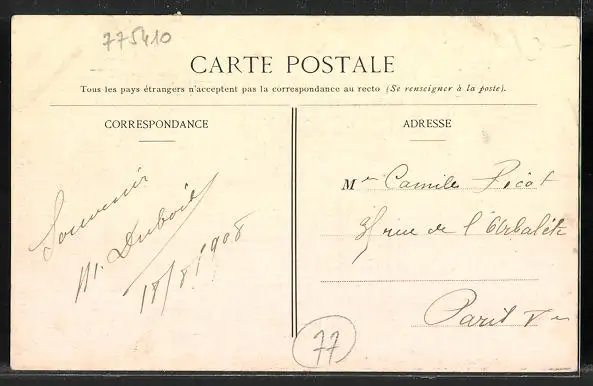 775410
CARTE POSTALE
Tous les pays étrangers n'acceptent pas la correspondance au recto (Se renseigner à la poste).
CORRESPONDANCE
Souvenir
M. Dubois
18/8/1908
ADRESSE
Mr Camille Picot
rue de l'Arbalète
Paris Ve
77